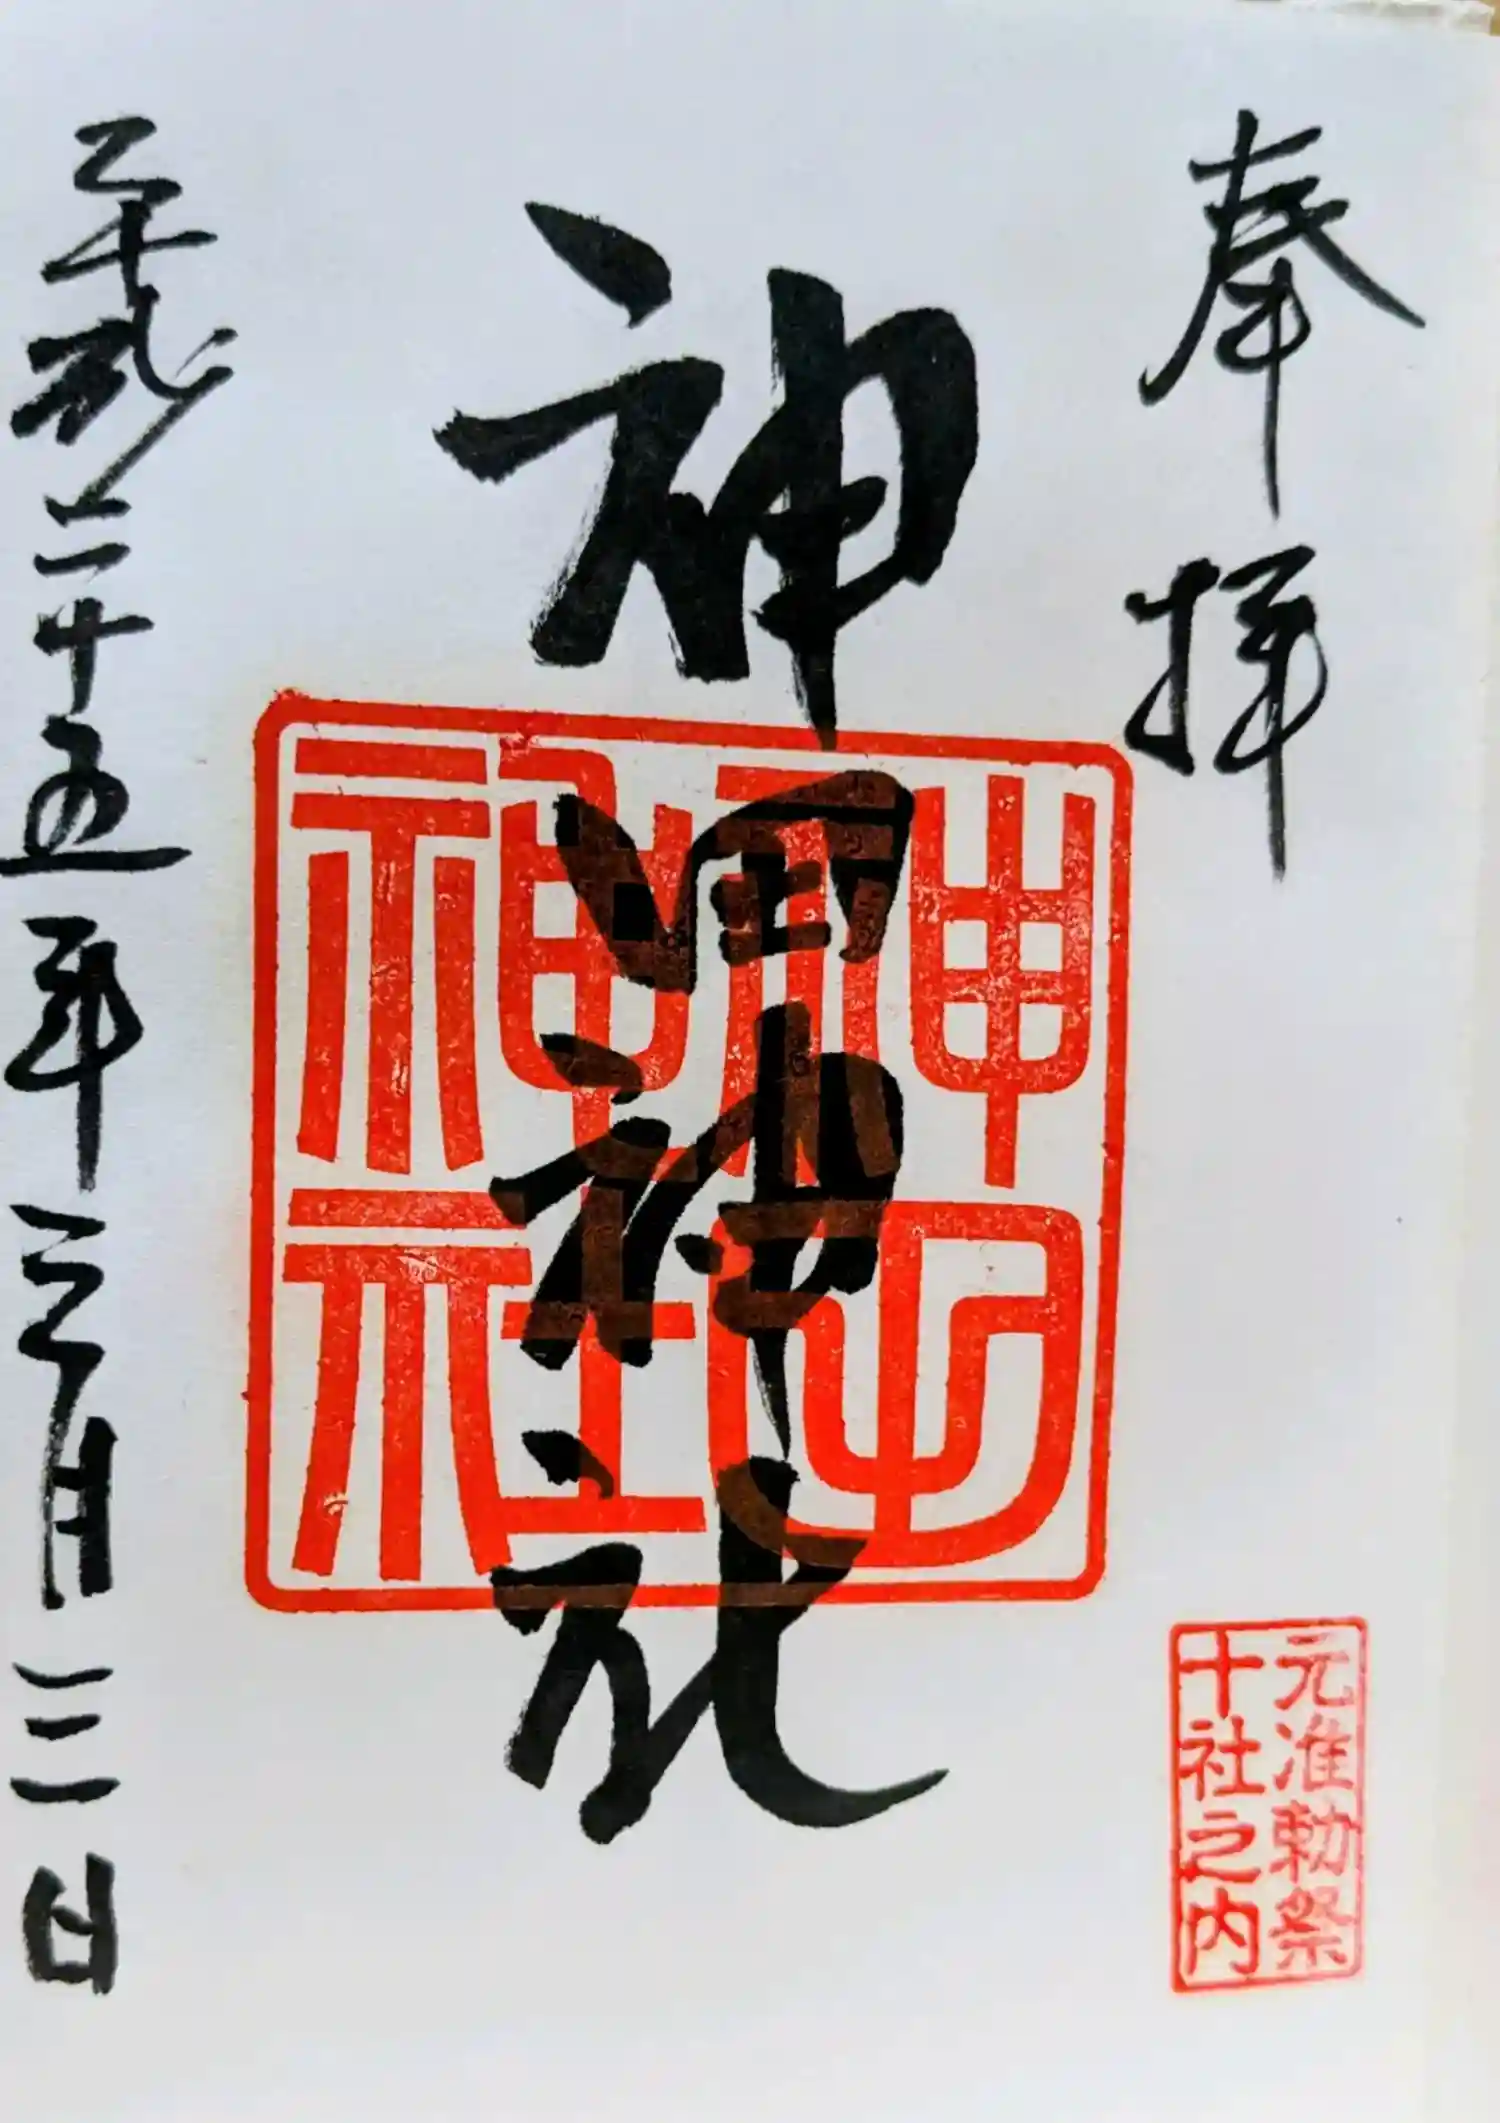 奉拝
神田神社
平成二十五年三月三日
神田神社
元准勅祭
十社之内